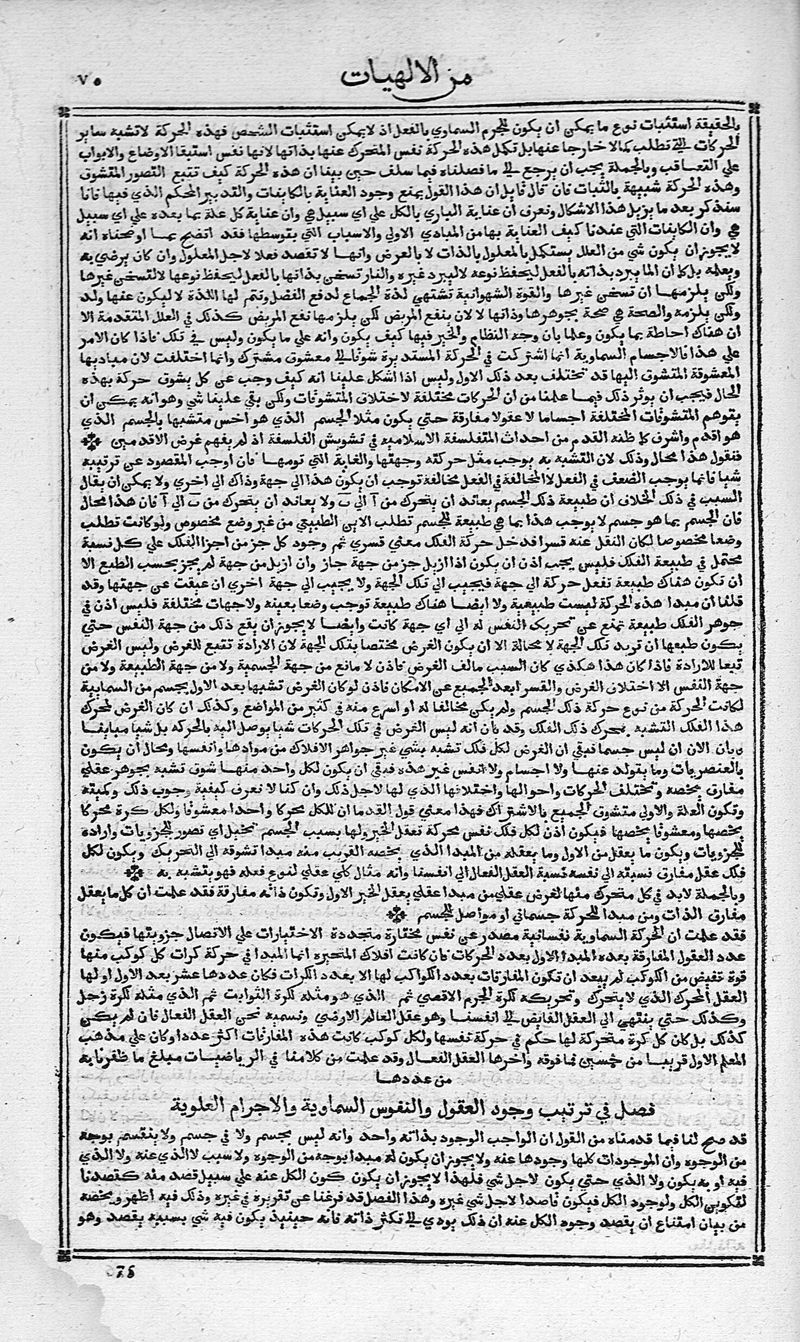 من الالهيات
٧٥
بالحقيقة استثبات نوع ما يمكن ان يكون للجرم السماوي بالفعل اذ لا يمكن استثبات الشخص فهذه الحركة لا تشبه ساير
الحركات التي تطلب كمالا خارجا عنها بل تكمل هذه الحركة نفس المتحرك عنها بذاتها لانها نفس استبقا الاوضاع والايواب
علي التعاقب وبالجملة يجب ان يرجع الي ما فصلناه فيما سلف حين بينا ان هذه الحركة كيف تتبع التصور المتشوق
وهذه الحركة شبيهة بالثبات فان قال قايل ان هذا القول يمنع وجود العناية بالكاينات والتدبير المحكم الذي فيها فانا
سنذكر بعد ما يزيل هذا الاشكال ونعرف ان عناية الباري بالكل علي اي سبيل هي وان عناية كل علة بما بعده علي اي سبيل
هي وان الكاينات التي عندنا كيف العناية بها من المبادي الاولي والاسباب التي بتوسطها فقد اتضح بما اوضحناه انه
لا يجوز ان يكون شي من العلل يستكمل بالمعلول بالذات لا بالعرض وانها لا تقصد فعلا لاجل المعلول وان كان يرضي به
ويعلمه بل كما ان الما يبرد بذاته بالفعل ليحفظ نوعه لا ليبرد غيره والنار تسخن بذاتها بالفعل ليحفظ نوعها لا لتسخن غيرها
ولكن يلزمها ان تسخن غيرها والقوة الشهوانية تشتهي لذة الجماع لدفع الفضل وتتم لها اللذة لا ليكون عنها ولد
ولكن يلزمه والصحة هي صحة بجوهرها وذاتها لا لان ينفع المريض لكن يلزمها نفع المريض كذلك في العلل المتقدمة الا
ان هناك احاطة بما يكون وعلما بان وجه النظام والخير فيها كيف يكون وانه علي ما يكون وليس في تلك فاذا كان الامر
علي هذا فالاجسام السماوية انما اشتركت في الحركة المستديرة شوقا الي معشوق مشترك وانما اختلفت لان مباديها
المعشوقة المتشوق اليها قد تختلف بعد ذلك الاول وليس اذا اشكل علينا انه كيف وجب عن كل بشوق حركة بهذه
الحال فيجب ان يوثر ذلك فيما علمنا من ان الحركات مختلفة لاختلاف المتشوقات ولكن بقي علينا شي وهو انه يمكن ان
يتوهم المتشوقات المختلفة اجساما لا عقولا مفارقة حتي يكون مثلا الجسم الذي هو اخس متشبها بالجسم الذي
هو اقدم واشرف كما ظنه القدم من احداث المتفلسفة الاسلاميه في تشويش الفلسفة اذ لم يفهم غرض الاقدمين
فنقول هذا محال وذلك لان التشبه به يوجب مثل حركته وجهتها والغاية التي تومها فان اوجب المقصود عن ترتيبه
شيا فانما يوجب الضعف في الفعل لا المخالفة في الفعل مخالفة توجب ان يكون هذا الي جهة وذاك الي اخري ولا يمكن ان يقال
السبب في ذلك الخلاف ان طبيعة ذلك الجسم يعاند ان يتحرك من آ الي ب ولا يعاند ان يتحرك من ب الي آ فان هذا محال
فان الجسم بما هو جسم لا يوجب هذا بما هي طبيعة للجسم تطلب الاين الطبيعي من غير وضع مخصوص ولو كانت تطلب
وضعا مخصوصا لكان النقل عنه قسرا فدخل حركة الفلك معني قسري ثم وجود كل جز من اجزا الفلك علي كل نسبة
محتمل في طبيعة الفلك فليس يجب اذن ان يكون اذا ازيل جز من جهة جاز وان ازيل من جهة لم يجز بحسب الطبع الا
ان تكون هناك طبيعة تفعل حركة الي جهة فيجيب الي تلك الجهة ولا يجيب الي جهة اخري ان عيقت عن جهتها وقد
قلنا ان مبدا هذه الحركة ليست طبيعية ولا ايضا هناك طبيعة توجب وضعا بعينه ولا جهات مختلفة فليس اذن في
جوهر الفلك طبيعة تمنع عن تحريك النفس له الي اي جهة كانت وايضا لا يجوز ان يقع ذلك من جهة النفس حتي
يكون طبعها ان تريد تلك الجهة لا محالة الا ان يكون الغرض مختصا بتلك الجهة لان الارادة تتبع للغرض وليس الغرض
تبعا للارادة فاذا كان هذا هكذي كان السبب مخالف الغرض فاذن لا مانع من جهة الجسمية ولا من جهة الطبيعة ولا من
جهة النفس الا اختلاف الغرض والقسر ابعد الجميع عن الامكان فاذن لو كان الغرض تشبها بعد الاول بجسم من السمايية
لكانت الحركة من نوع حركة ذلك الجسم ولم يكن مخالفا له او اسرع منه في كثير من المواضع وكذلك ان كان الغرض لمحرك
هذا الفلك التشبه بمحرك ذلك الفلك وقد بان انه ليس الغرض في تلك الحركات شيا يوصل اليه بالحركه بل شيا مباينا
وبان الان ان ليس جسما فبقي ان الغرض لكل فلك تشبه بشي غير جواهر الافلاك من موادها وانفسها ومحال ان يكون
بالعنصريات وما يتولد عنها ولا اجسام ولا انفس غير هذه فبقي ان يكون لكل واحد منها شوق تشبه بجوهر عقلي
مفارق يخصه وتختلف الحركات واحوالها واختلافها الذي لها لاجل ذلك وان كنا لا نعرف كيفية وجوب ذلك وكميته
وتكون العلة والاولي متشوق الجميع بالاشتراك فهذا معني قول القدما ان للكل محركا واحدا معشوقا ولكل كرة محركا
يخصها ومعشوقا يخصها فيكون اذن لكل فلك نفس محركة تعقل الخير ولها بسبب الجسم تخيل اي تصور للجزويات وارادة
للجزويات ويكون ما يعقل من الاول وما يعقله من المبدا الذي يخصه القريب منه مبدا تشوقه الي التحريك ويكون لكل
فلك عقل مفارق نسبته الي نفسه نسبة العقل الفعال الي انفسنا وانه مثال كلي عقلي لنوع فعله فهو يتشبه به
وبالجملة لابد في كل متحرك منها لغرض عقلي من مبدا عقلي يعقل الخير الاول وتكون ذاته مفارقة فقد علمت ان كل ما يعقل
مفارق الذات ومن مبدا للحركة جسماني او مواصل للجسم
فقد علمت ان الحركة السماوية نفسانية مصدر عن نفس مختارة متجددة الاختيارات علي الاتصال جزويتها فيكون
عدد العقول المفارقة بعده المبدا الاول بعدد الحركات فان كانت افلاك المتحيره انما المبدا في حركة كرات كل كوكب منها
قوة تفيض من الكوكب لم يبعد ان تكون المفارقات بعدد الكواكب لها لا بعدد الكرات فكان عددها عشر بعد الاول اولها
العقل المحرك الذي لا يتحرك وتحريكه لكرة الجرم الاقصي ثم الذي هو مثله لكرة الثوابت ثم الذي مثله لكرة زحل
وكذلك حتي ينتهي الي العقل الفايض الي انفسنا وهو عقل العالم الارضي ونسميه نحن العقل الفعال فان لم يكن
كذلك بل كان كل كرة متحركة لها حكم في حركة نفسها ولكل كوكب كانت هذه المفارقات اكثر عددا وكان علي مذهب
المعلم الاول قريبا من خمسين فما فوقه واخرها العقل الفعال وقد علمت من كلامنا في الرياضيات مبلغ ما ظفرنا به
من عددها
فصل في ترتيب وجود العقول والنفوس السماوية والاجرام العلوية
قد صح لنا فيما قدمناه من القول ان الواجب الوجود بذاته واحد وانه ليس بجسم ولا في جسم ولا ينقسم بوجه
من الوجوه وان الموجودات كلها وجودها عنه ولا يجوز ان يكون له مبدا بوجه من الوجوه ولا سبب لا الذي عنه ولا الذي
فيه او به يكون ولا الذي حتي يكون لاجل شي فلهذا لا يجوز ان يكون كون الكل عنه علي سبيل قصد منه كقصدنا
لتكوين الكل ولوجود الكل فيكون قاصدا لاجل شي غيره وهذا الفصل قد فرغنا عن تقريره في غيره وذلك فيه اظهر ويخصه
من بيان امتناع ان يقصد وجود الكل عنه ان ذلك يودي الي تكثر ذاته فانه حينيذ يكون فيه شي بسببه يقصد وهو